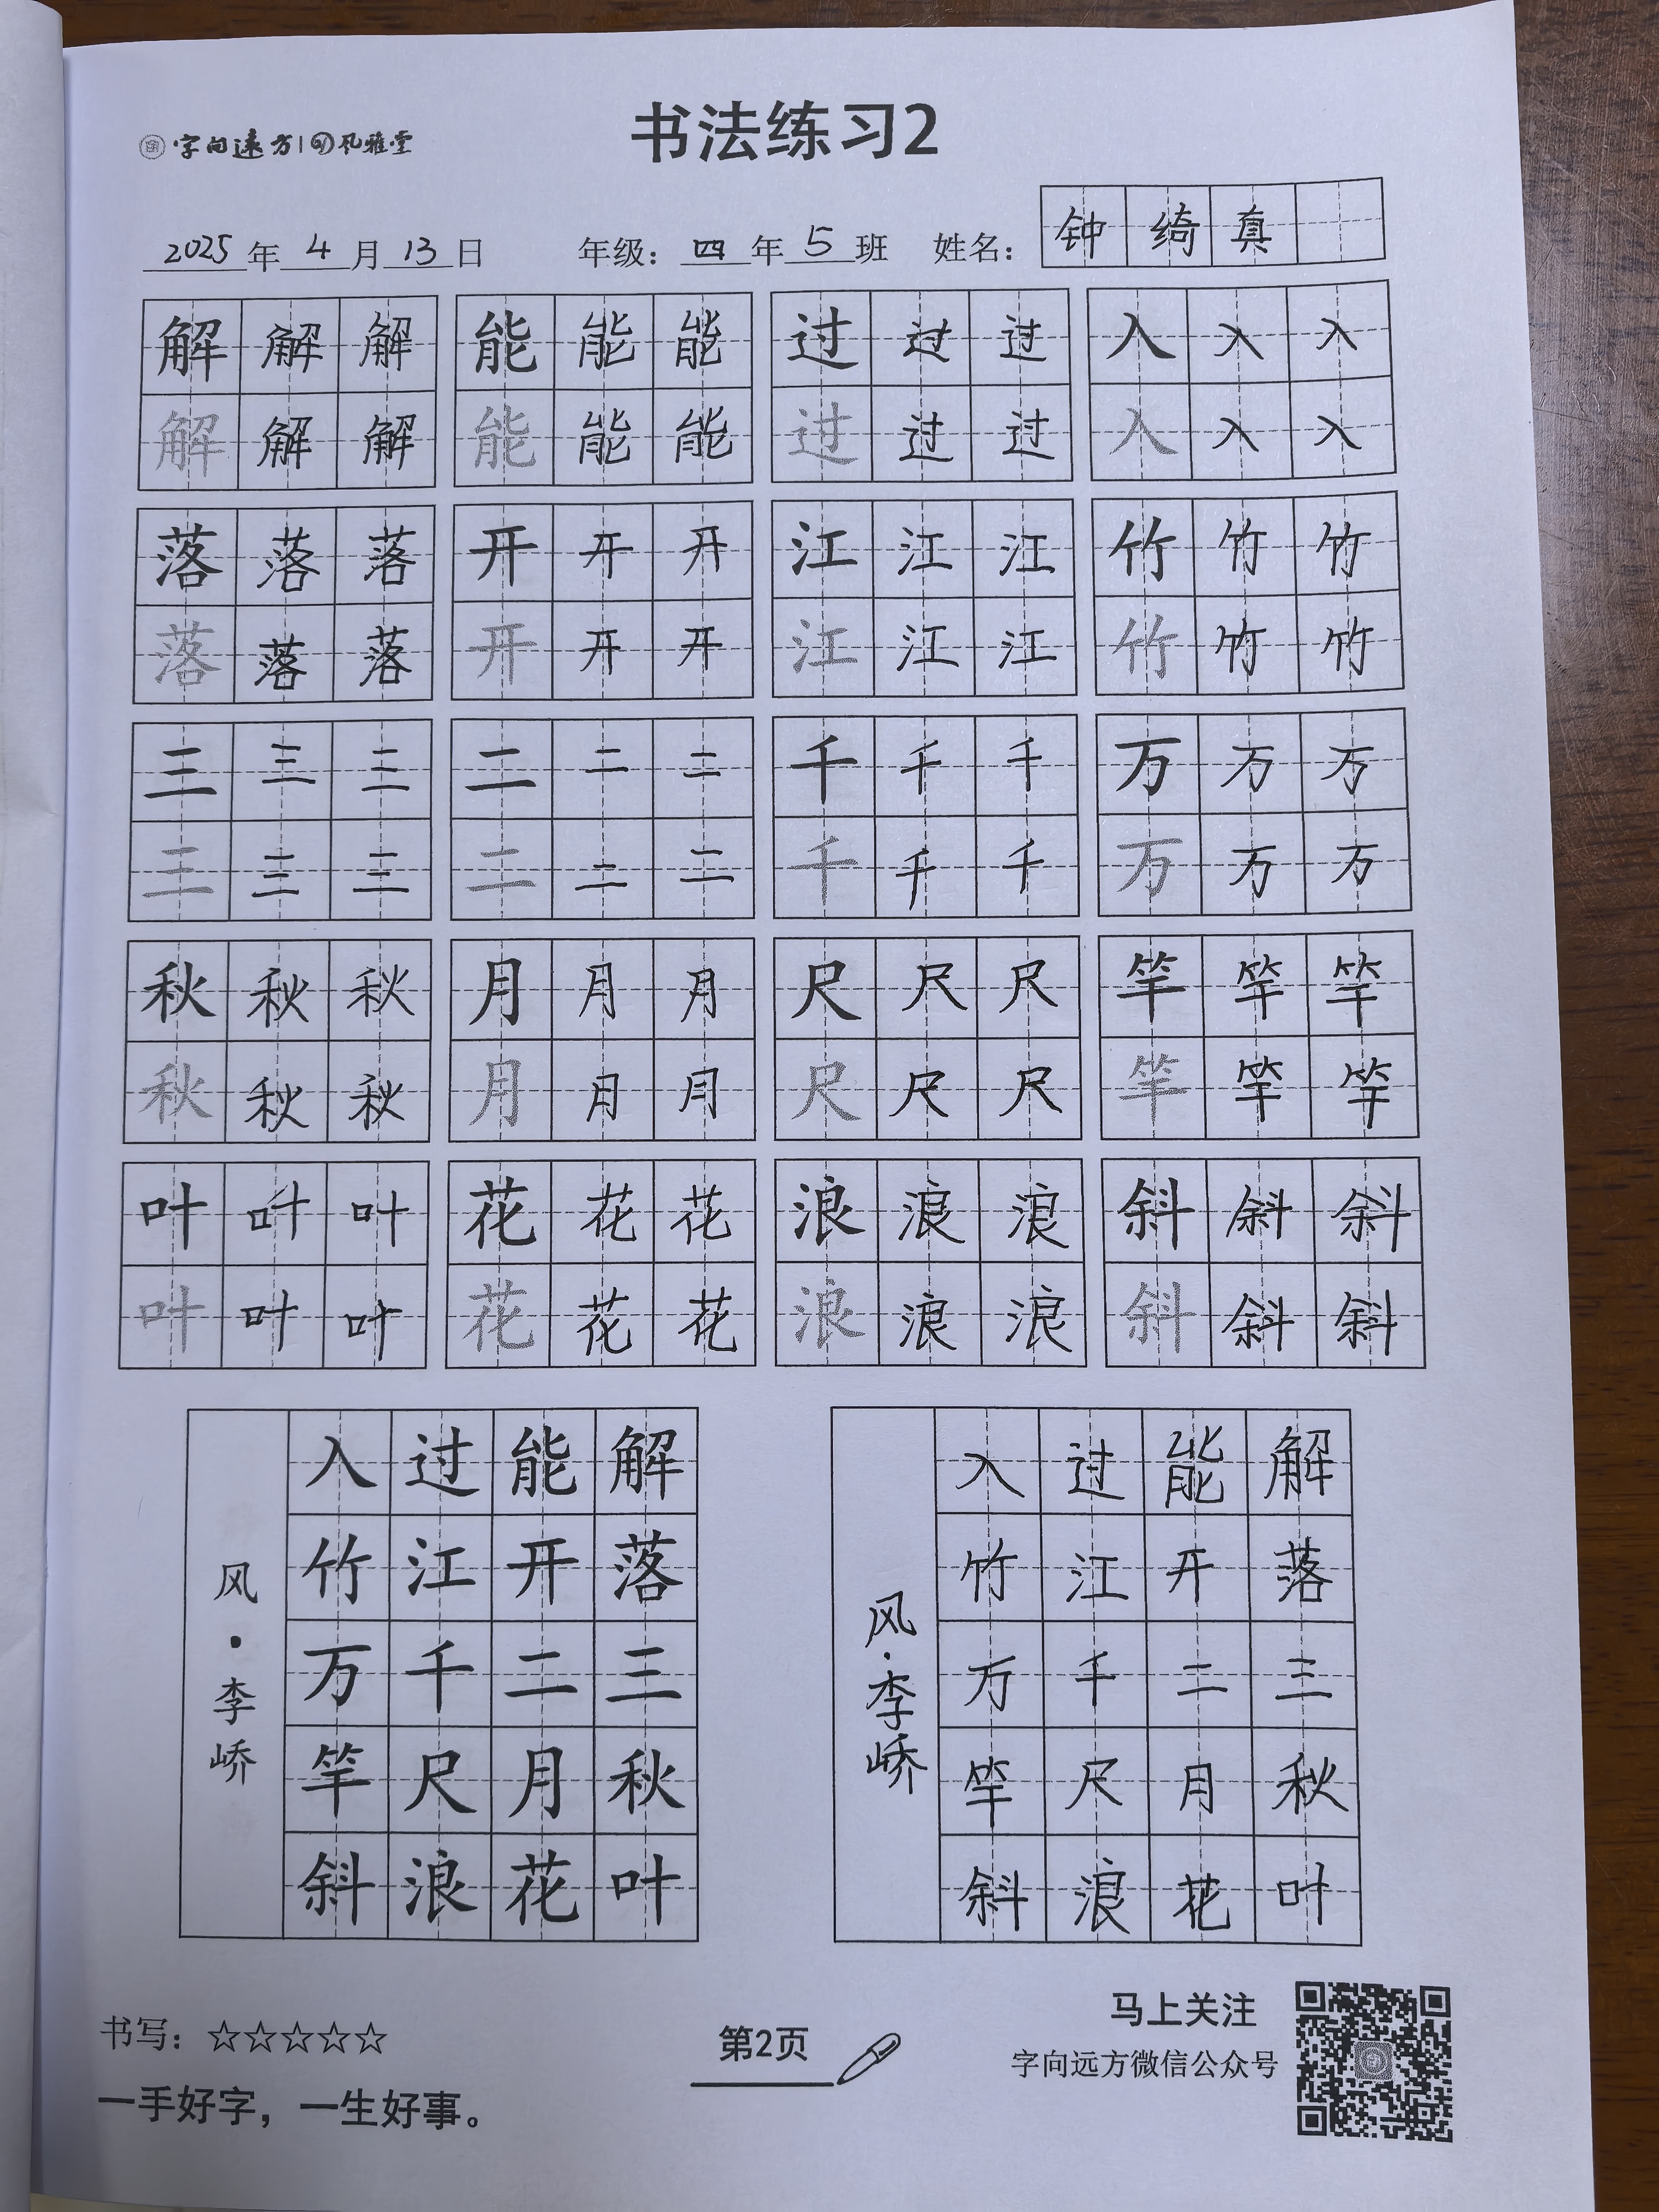 字向远方 风雅堂
书法练习2
2025年4月13日 年级：四年5班 姓名：钟绮真
解解解 能能能 过过过 入入入
解解解 能能能 过过过 入入入
落落落 开开开 江江江 竹竹竹
落落落 开开开 江江江 竹竹竹
三三三 二二二 千千千 万万万
三三三 二二二 千千千 万万万
秋秋秋 月月月 尺尺尺 竿竿竿
秋秋秋 月月月 尺尺尺 竿竿竿
叶叶叶 花花花 浪浪浪 斜斜斜
叶叶叶 花花花 浪浪浪 斜斜斜
解落三秋叶
能开二月花
过江千尺浪
入竹万竿斜
风·李峤
解落三秋叶
能开二月花
过江千尺浪
入竹万竿斜
风·李峤
书写：☆☆☆☆☆
一手好字，一生好事。
第2页
马上关注
字向远方微信公众号